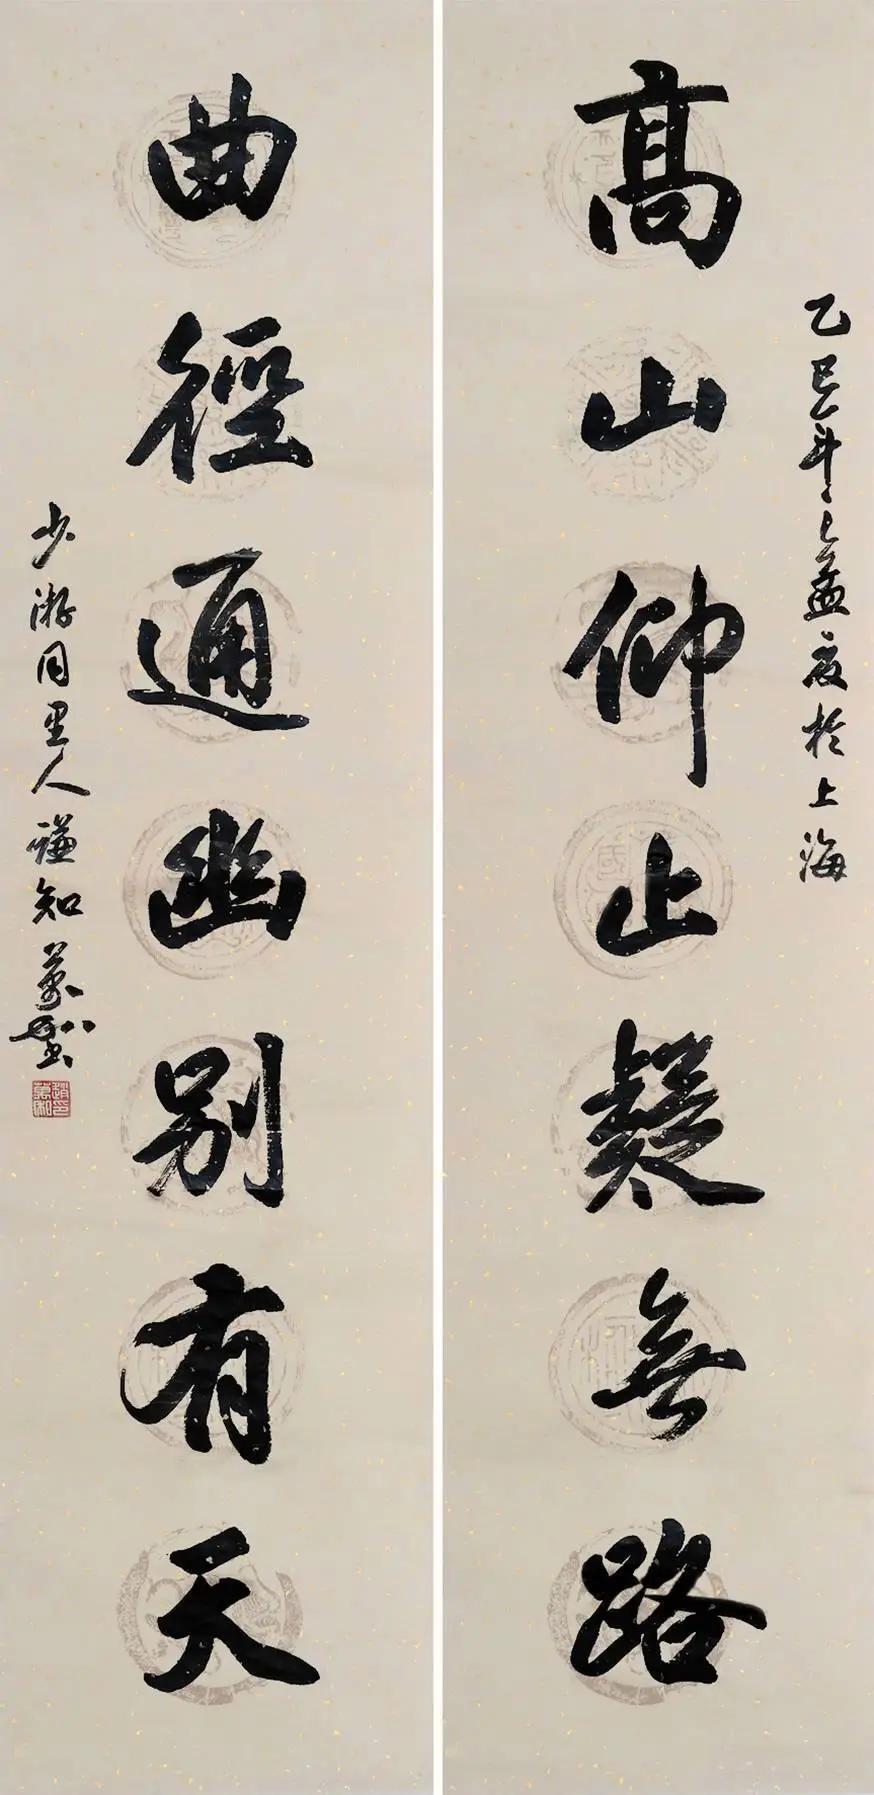 高山仰止疑無路
乙巳年之孟夏於上海
曲徑通幽別有天
少游同里人謙知